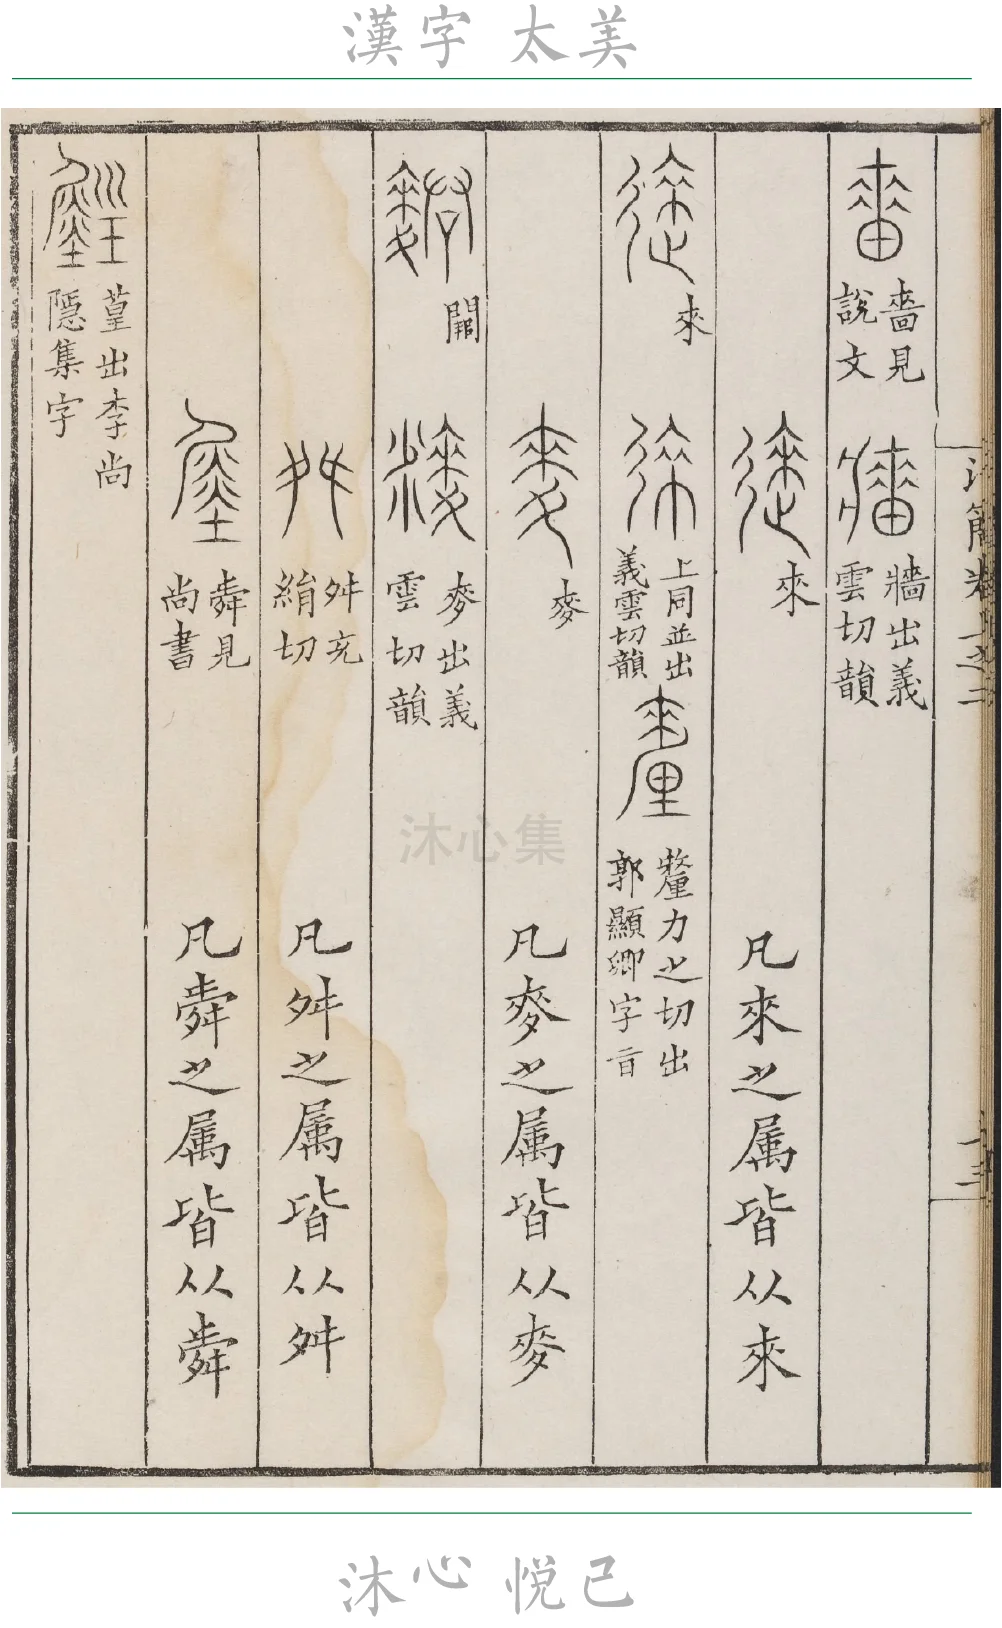 漢字 太美
嗇見說文 牆出義雲切韻
來 凡來之属皆从來
來 上同並出義雲切韻 釐力之切出郭顯卿字㫖
麥 凡麥之属皆从麥
麥出義雲切韻
舛充絹切 凡舛之属皆从舛
舜見尚書 凡舜之属皆从舜
葟出李尚隱集字
沐心集
沐心 悦己